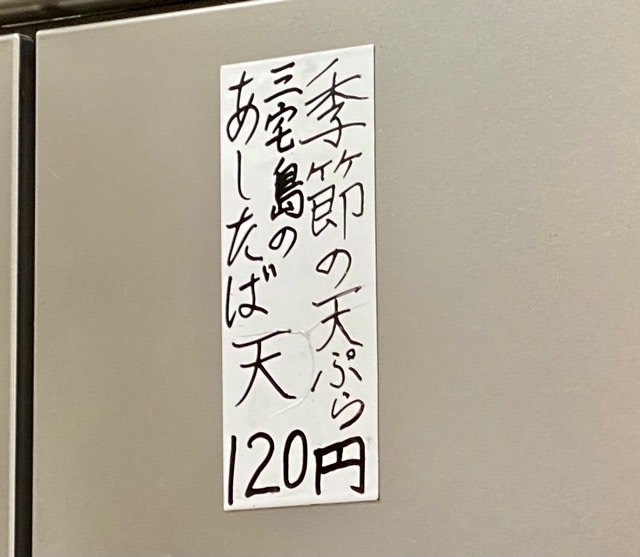 季節の天ぷら
三宅島の
あしたば天
120円